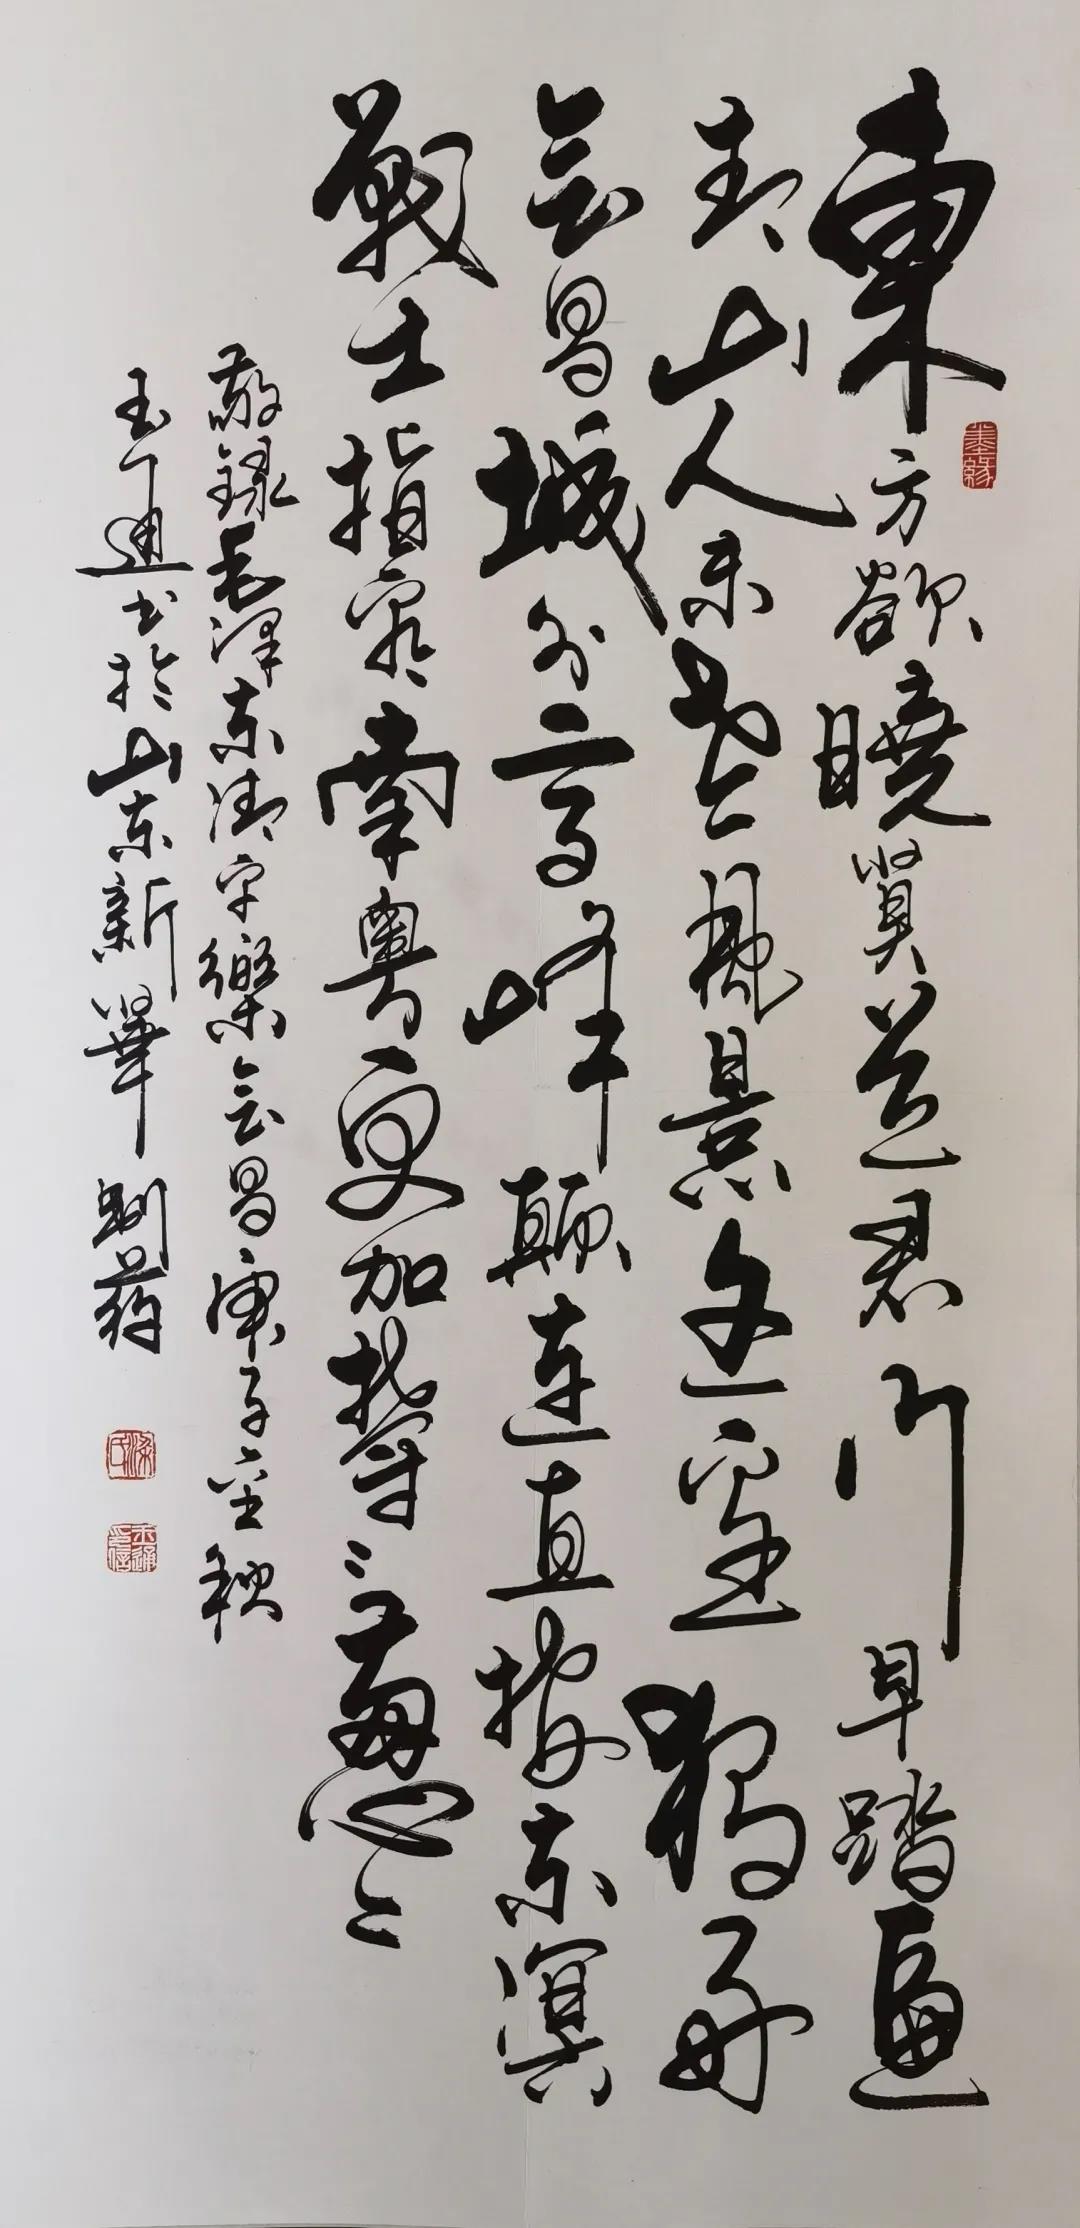 東方欲曉莫道君行早踏遍
青山人未老風景這邊獨好
會昌城外高峰顛連直接東溟
戰士指看南粵更加鬱々葱々
敬録毛澤東清平樂會昌庚子金秋
玉通书於山东新華
墨緣
梁氏